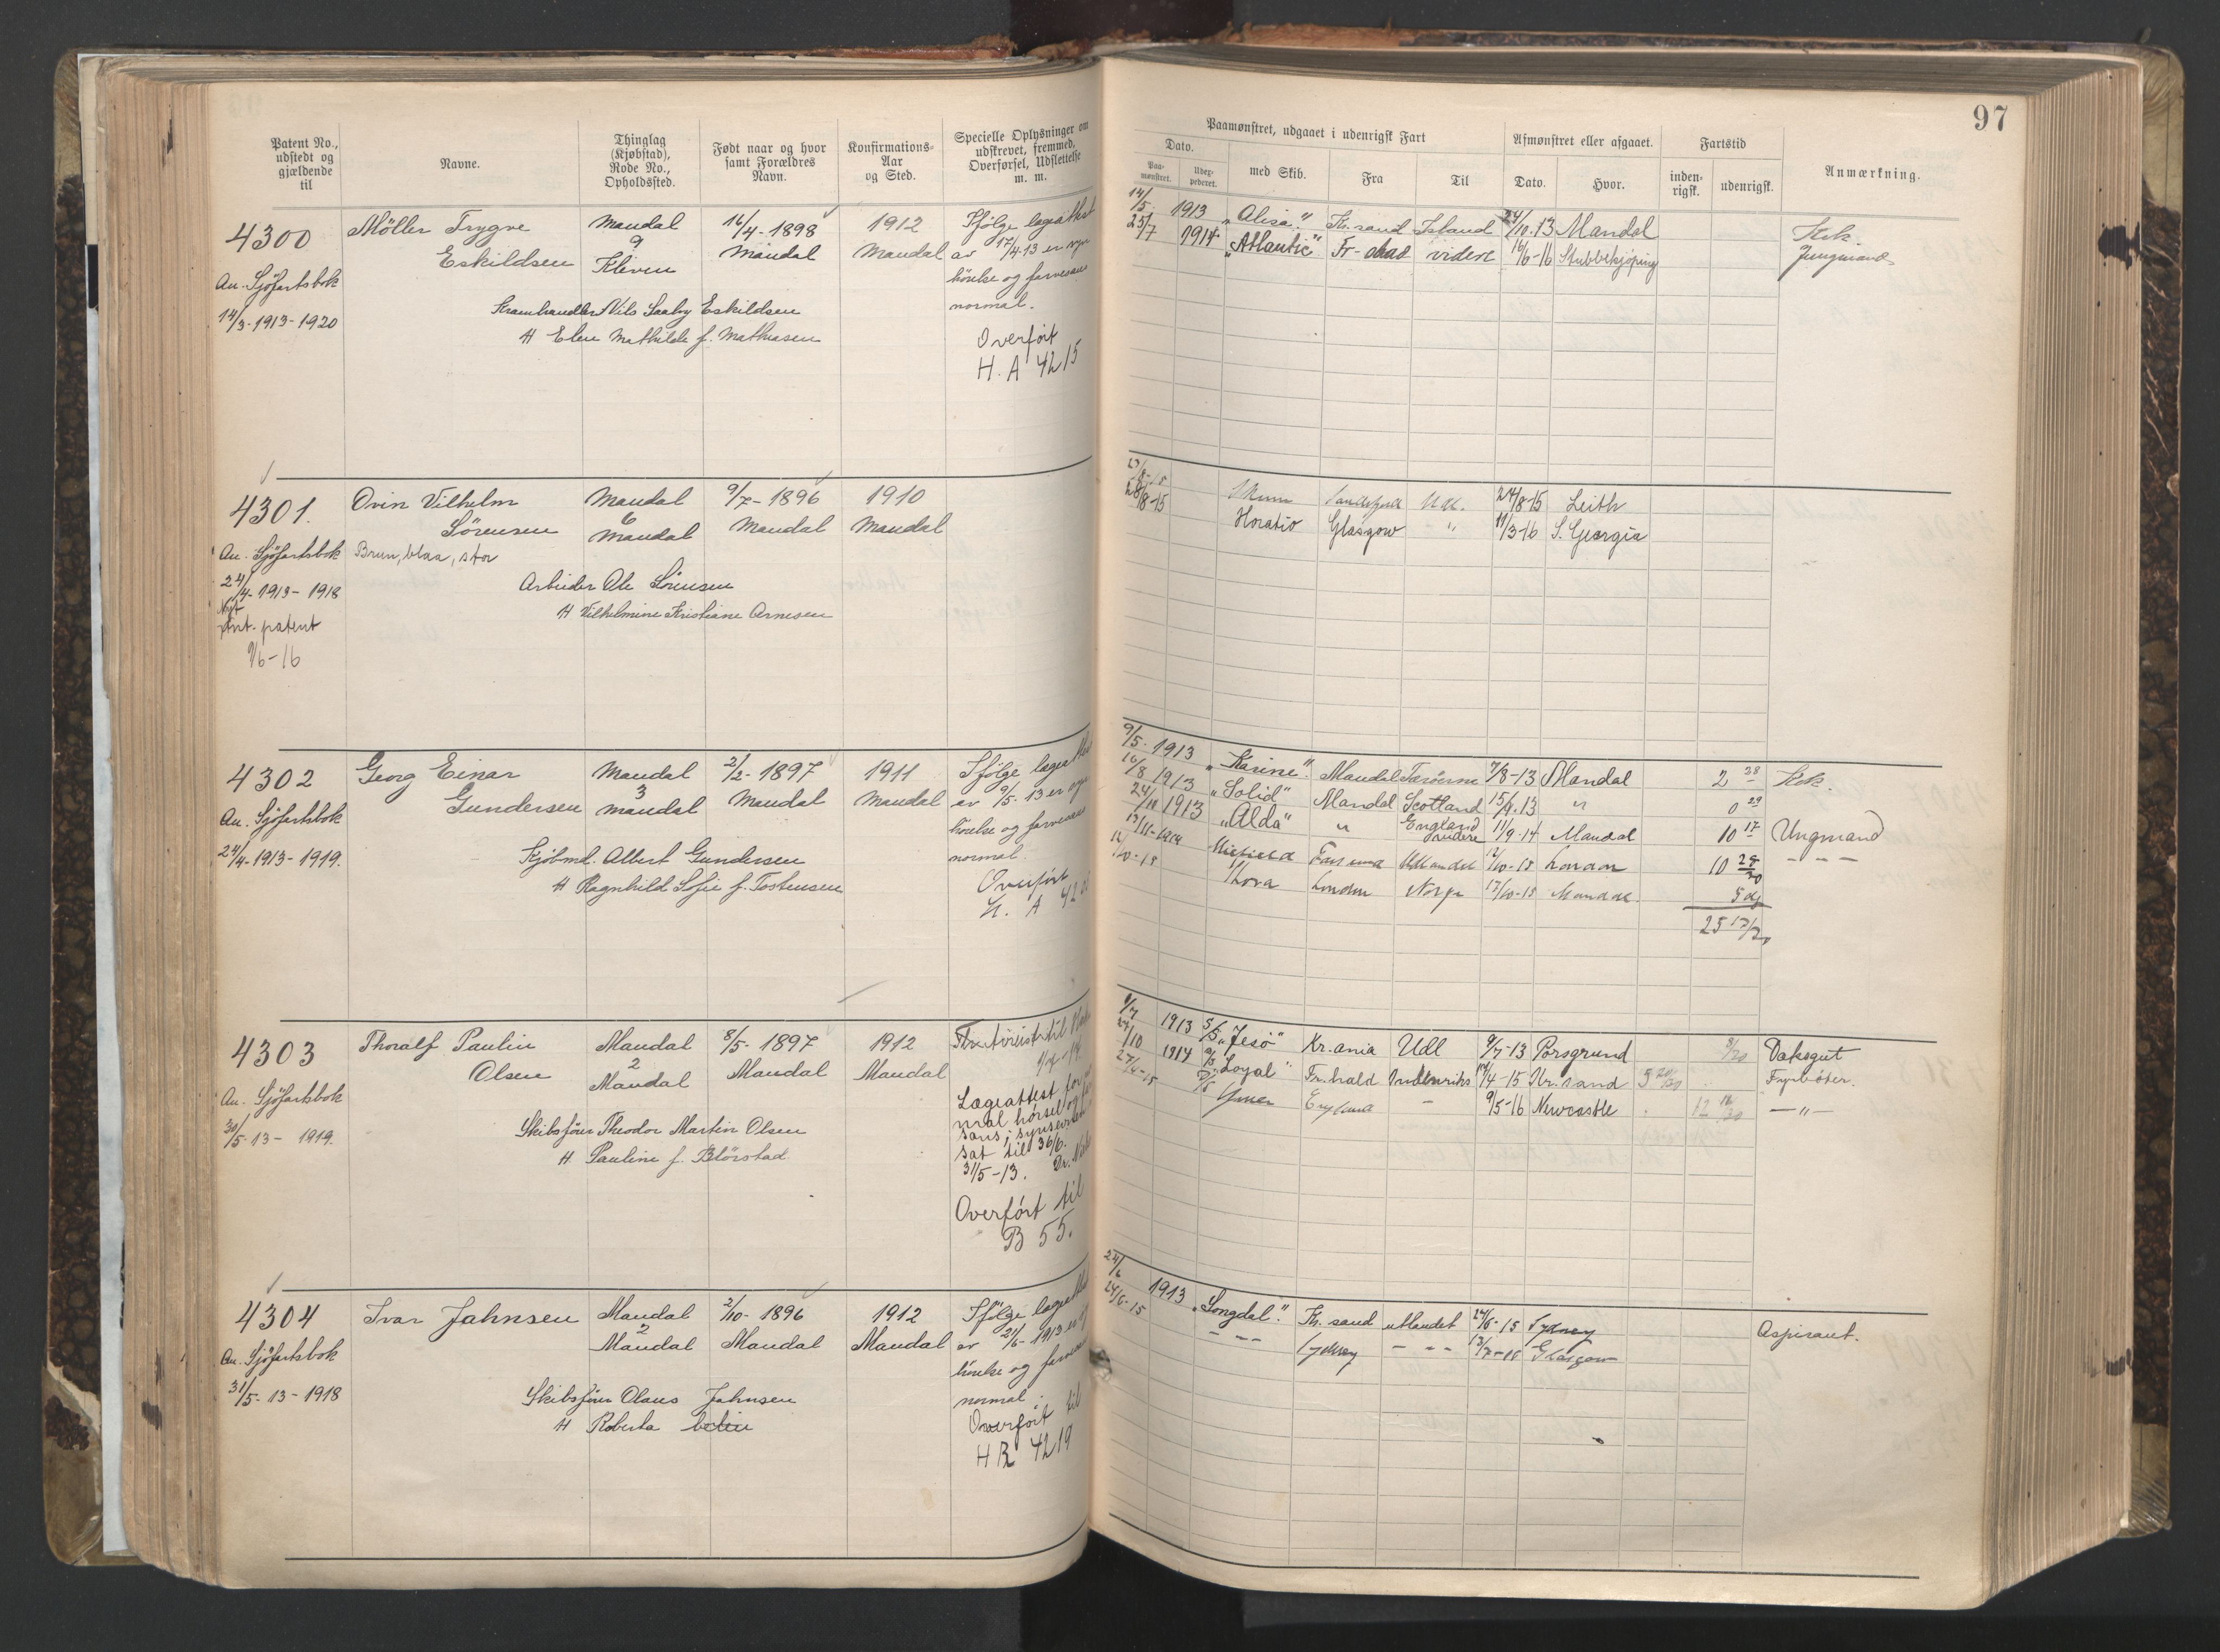 97
Patent No., udstedt og gjældende til
Navne.
Thinglag (Kjøbstad), Rode No., Opholdssted.
Født naar og hvor samt Forældres Navn.
Konfirmations-Aar og Sted.
Specielle Oplysninger om udskrevet, fremmed, Overførsel, Udslettelse m. m.
Paamønstret, udgaaet i udenrigsk Fart
Dato.
Paa-mønstret.
med Skib.
Fra
Til
Afmønstret eller afgaaet.
Dato.
Hvor.
Fartstid
inden-rigsk.
udenrigsk.
Anmærkning.
4300
Möller Trygve
Eskildsen
Mandal
9
Kleven
16/4-1898
Mandal
1912
Mandal
Ifølge lægeattest
av 17/4-13 er syn
hörelse og farvesans
normal.
Overfört
H. A 4215
An. Sjöfartsbok
14/3-1913-1920
Nils Saaby Eskildsen
H Elen Mathilde f. Mathiasen
14/5 1913 "Alisa" Kr.sand Island 24/10.13 Mandal Kok.
25/7 1914 "Atlantic" Fr-stad videre 16/6-16 Stubbekjøping Jungmand
4301.
Ovin Vilhelm
Sörensen
Brun, blaa, stor
Mandal
6
Mandal
9/7-1896
Mandal
1910
Mandal
An. Sjöfartsbok
24/4-1913-1918
Nyt
Ant. patent
9/6-16
Arbeider Ole Sörensen
H Vilhelmine Kristiane Arnesen
24/8-15 Leith
28/8-15 Horatio Glasgow " 11/3-16 S. Georgia
4302
Georg Einar
Gundersen
Mandal
3
Mandal
2/2-1897
Mandal
1911
Mandal
Ifølge lægeattest
av 9/5-13 er syn
hörelse og farvesans
normal.
Overfört
An. Sjöfartsbok
24/4-1913-1919.
Kjöbmd. Albert Gundersen
H Ragnhild Sofie f. Tostensen
9/5-1913 "Karine" Mandal Færöerne 7/8-13 Mandal 2 28 Kok.
16/8 1913 "Solid" Mandal Scotland 15/9.13 " 0 29
24/10 1913 "Alda" " England videre 11/9-14 Mandal 10 17 Ungmand
12/10-18 London 10 28/30 - - -
12/10-18 Kora London Norge 17/10-18 Mandal. 5 dg
25 17/30
4303
Thoralf Paulin
Olsen
Mandal
2
Mandal
8/5-1897
Mandal
1912
Mandal
Lægeattest for nor
mal hørsel og far
sat til 36/6.
31/5-13.
Overført til
B 55.
An. Sjöfartsbok
30/5-13-1919.
Skibsförer Theodor Martin Olsen
H Pauline f. Blörstad
1913 S/S "Jesö" Kr.ania Udl 9/7-13 Porsgrund 8/30 Daksgut
27/10 1914 "Loyal" Fr.hald Indenriks 14/4-15 Kr.sand Fyrböter.
27/4-15 9/5-16 Newcastle 12 16/30 -"-
4304
Ivar Jahnsen
Mandal
2
Mandal
2/10-1896
Mandal
1912
Mandal
Ifølge lægeattest
av 21/6-1913 er syn
hörelse og farvesans
normal.
Overført til
4219
An. Sjöfartsbok
31/5-13-1918
Skibsförer Olaus Jahnsen
H Roberta
24/6 1913 "Songdal" Kr.sand utlandet 24/6-15 Sydney Aspirant.
24/6-15 - " - Sydney - " - Glasgow